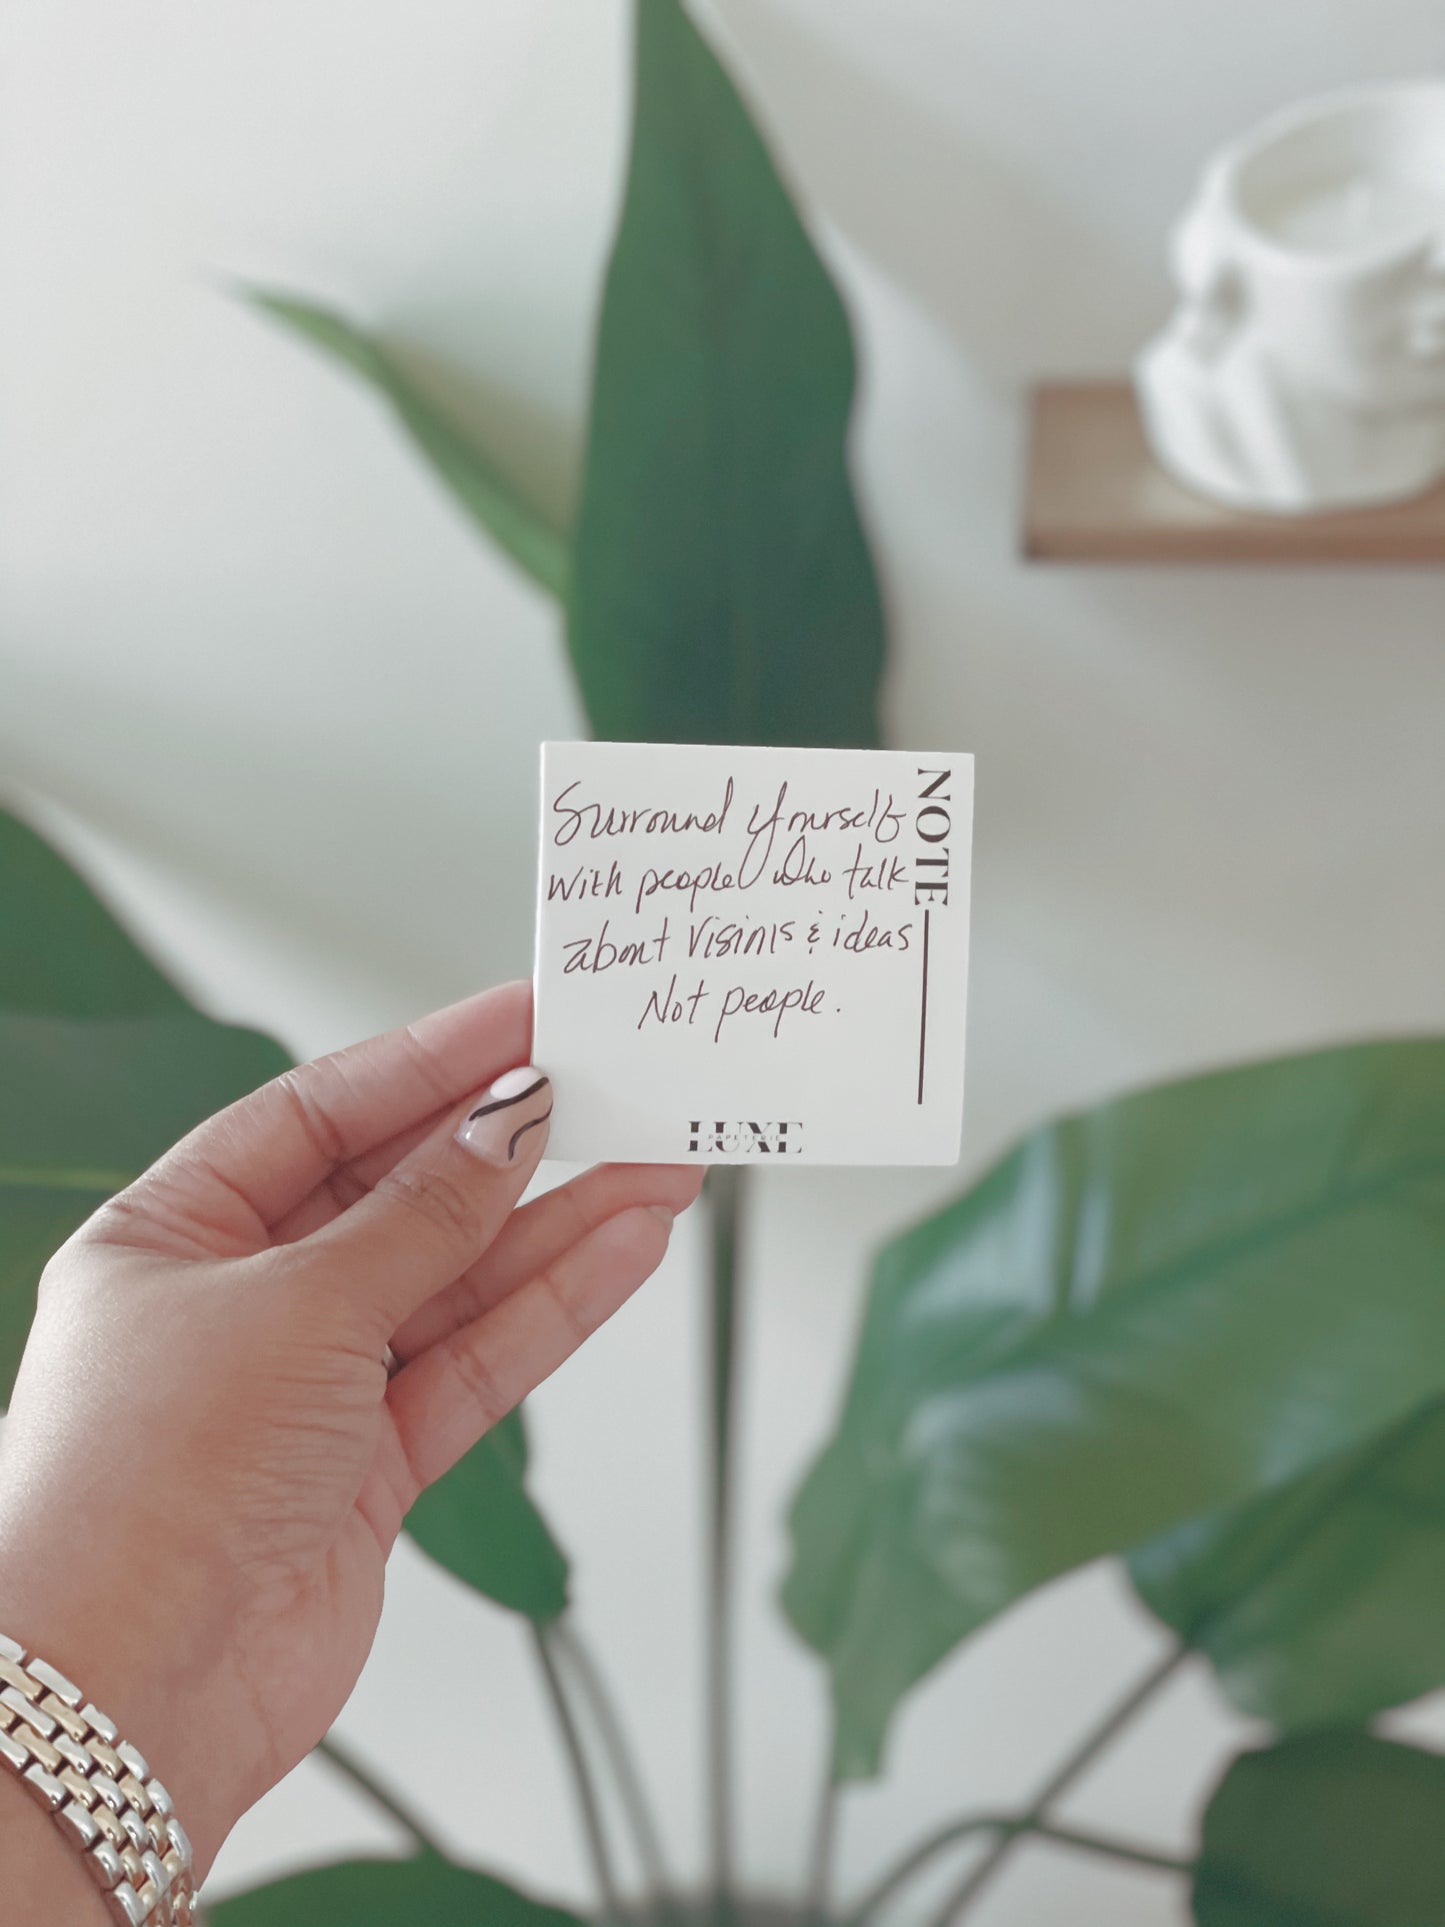 Surround yourself
with people who talk
about visinis & ideas
Not people.
NOTE
LUXE
PAPETERIE